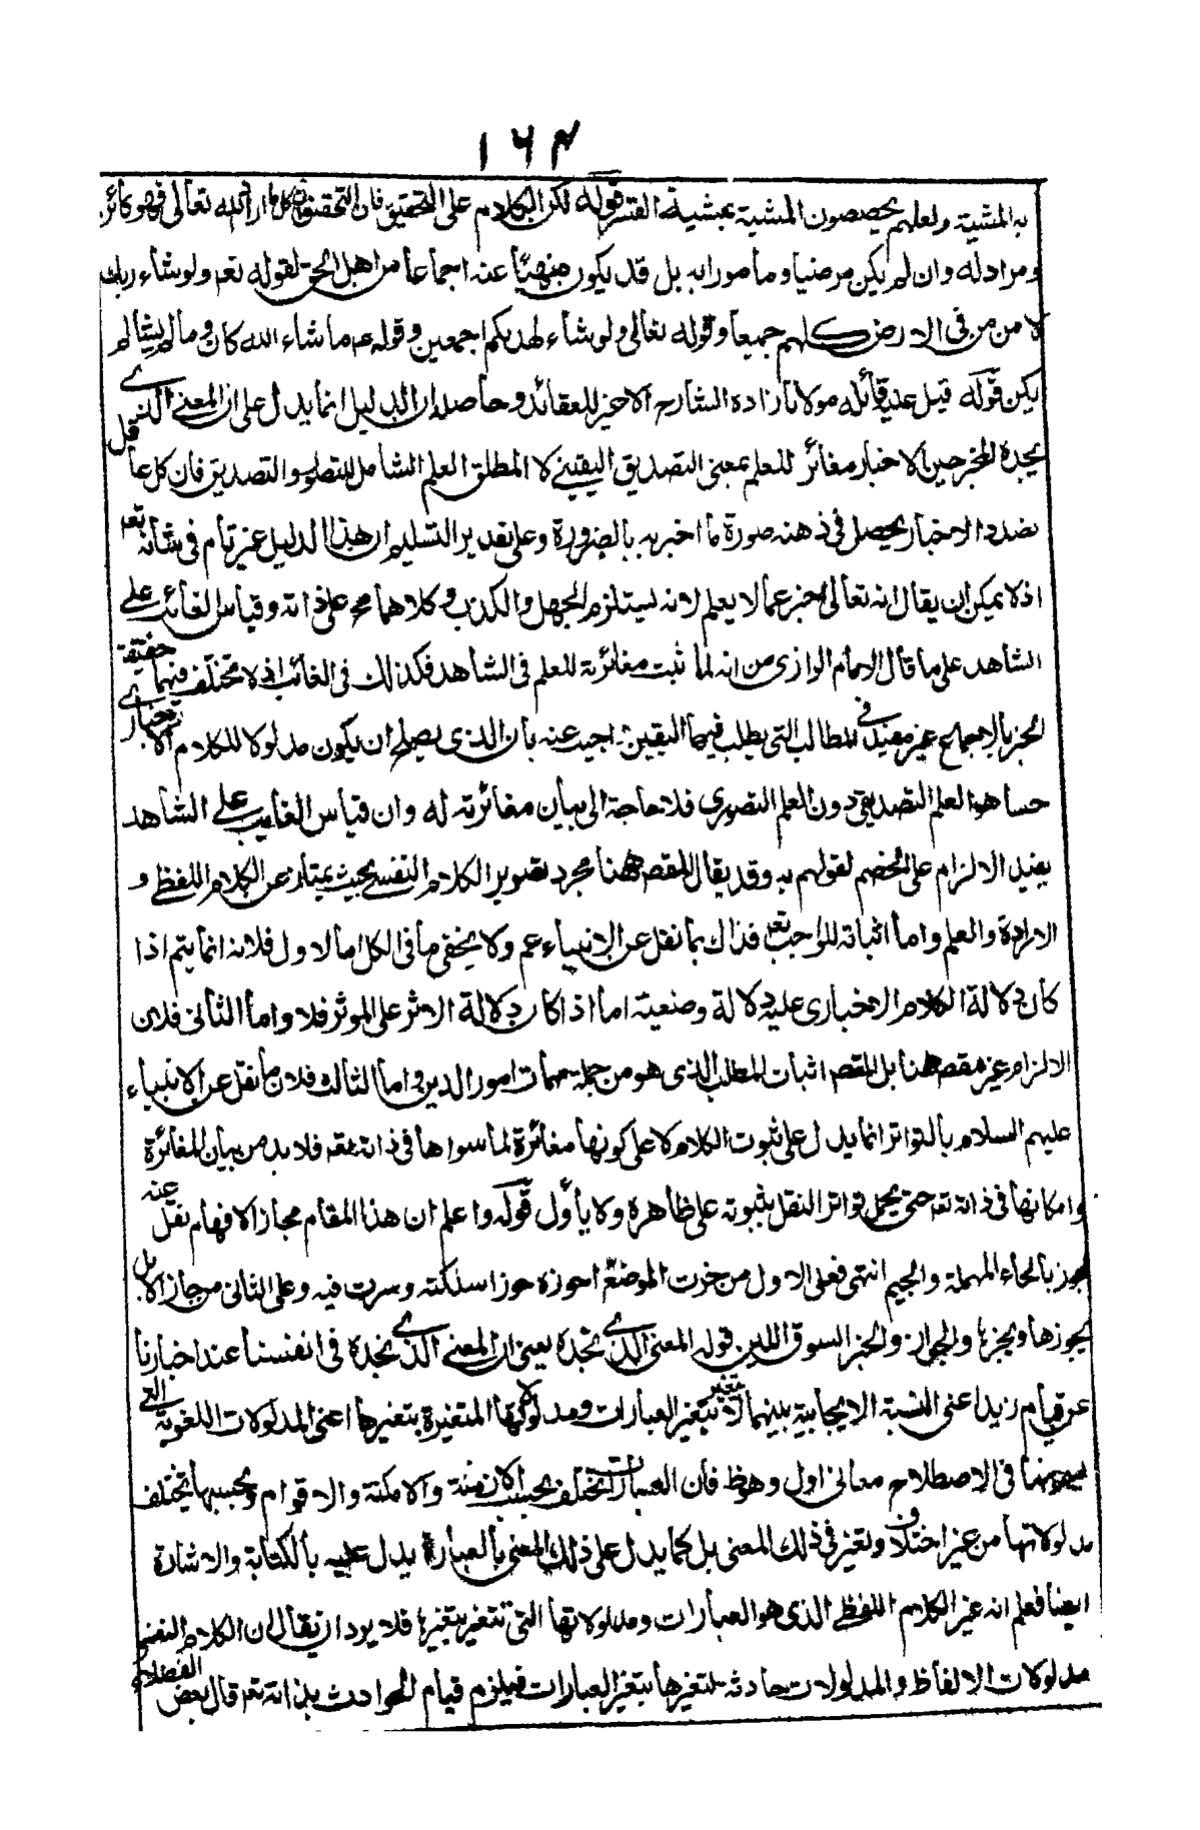 ١٦٣
به المشية ولعلهم يخصصون المشية بمشية القسر قوله لكن الكلام على التحقيق فان التحقيق ان كل ما اراد الله تعالى فهو كائن
ومراد له وان لم يكن مرضيا وما مورا به بل قد يكون منهيا عنه اجماعا من اهل الحق لقوله تعم ولو شاء ربك
لامن من فى الارض كلهم جميعا وقوله تعالى ولو شاء لهديكم اجمعين وقوله عم ما شاء الله كان وما لم يشا لم
يكن قوله قيل عليه قائله مولانا زاده الشارح الاخير للعقائد وحاصله ان الدليل انما يدل على ان المعنى الذى
يجده المخبر حين الاخبار مغائر للعلم بمعنى التصديق اليقينى لا المطلق العلم الشامل للتصور والتصديق فان كل عاقل
تصدد الاخبار يحصل فى ذهنه صورة ما اخبر به بالضرورة وعلى تقدير التسليم ان هذا الدليل غير تام فى شانه تعم
اذ لا يمكن ان يقال انه تعالى اخبر عما لا يعلم لانه يستلزم الجهل والكذب وكلاهما مح على ذاته وقياس الغائب على
الشاهد على ما قال الامام الرازى من انه لما ثبت مغائرته للعلم فى الشاهد فكذلك فى الغائب اذ لا تختلف فيهما حقيقة
الخبر بالاجماع غير مفيد فى المطالب التى يطلب فيها اليقين اجيب عنه بان الذى يصلح ان يكون مدلولا للكلام الاخبارى
حسا هو العلم التصديقى دون العلم التصورى فلا حاجة الى بيان مغائرته له وان قياس الغايب على الشاهد
يفيد الالزام على الخصم لقولهم به وقد يقال المقصم ههنا مجرد تصوير الكلام النفسى بحيث يمتاز عن الكلام اللفظى و
الارادة والعلم واما اثباته للواجب تعم فذاك بما نقل عن الانبياء عم ولا يخفى ما فى الكل اما الاول فلانه انما يتم اذا
كان دلالة الكلام الاخبارى عليه دلالة وضعية اما اذا كان دلالة الاثر على الموثر فلا واما الثانى فلان
الالزام غير مقصم ههنا بل المقصم اثبات المطلب الذى هو من جملة مهمات امور الدين واما الثالث فلان ما نقل عن الانبياء
عليهم السلام بالتواتر انما يدل على ثبوت الكلام لا على كونها مغائرة لما سواها فى ذاته تعم فلا بد من بيان المغائرة
وامكانها فى ذاته تعم حتى يحمل تواتر النقل بثبوته على ظاهره ولا ياول قوله واعلم ان هذا المقام مجاز الافهام نقل عنه
يجوز بالحاء المهملة والجيم انتهى فعلى الاول من حزت الموضع احوزه حوزا سلكته وسرت فيه وعلى الثانى من جاز الابل
يجوزها ويجزيها والجواز والخبر السوق اللين قوله المعنى الذى نجده يعنى ان المعنى الذى نجده فى انفسنا عند اخبارنا
عن قيام زيد اعنى النسبة الايجابية بينهما لا تتغير بتغير العبارات ومدلولاتها المتغيرة بتغيرها اعنى المدلولات اللغوية التى
يسمونها فى الاصطلاح معانى اول وهو ظ فان العبارات تختلف بحسب الازمنة والامكنة والاقوام وبحسبها يختلف
مدلولاتها من غير اختلاف وتغير فى ذلك المعنى بل كما يدل على ذلك المعنى بالعبارة يدل عليه بالكتابة والاشارة
ايضا فعلم انه غير الكلام اللفظى الذى هو العبارات ومدلولاتها التى تتغير بتغيرها فلا يرد ان يقال ان الكلام النفسى
مدلولات الالفاظ والمدلولات حادثه لتغيرها بتغير العبارات فيلزم قيام الحوادث بذاته تعم قال بعض الفضلاء